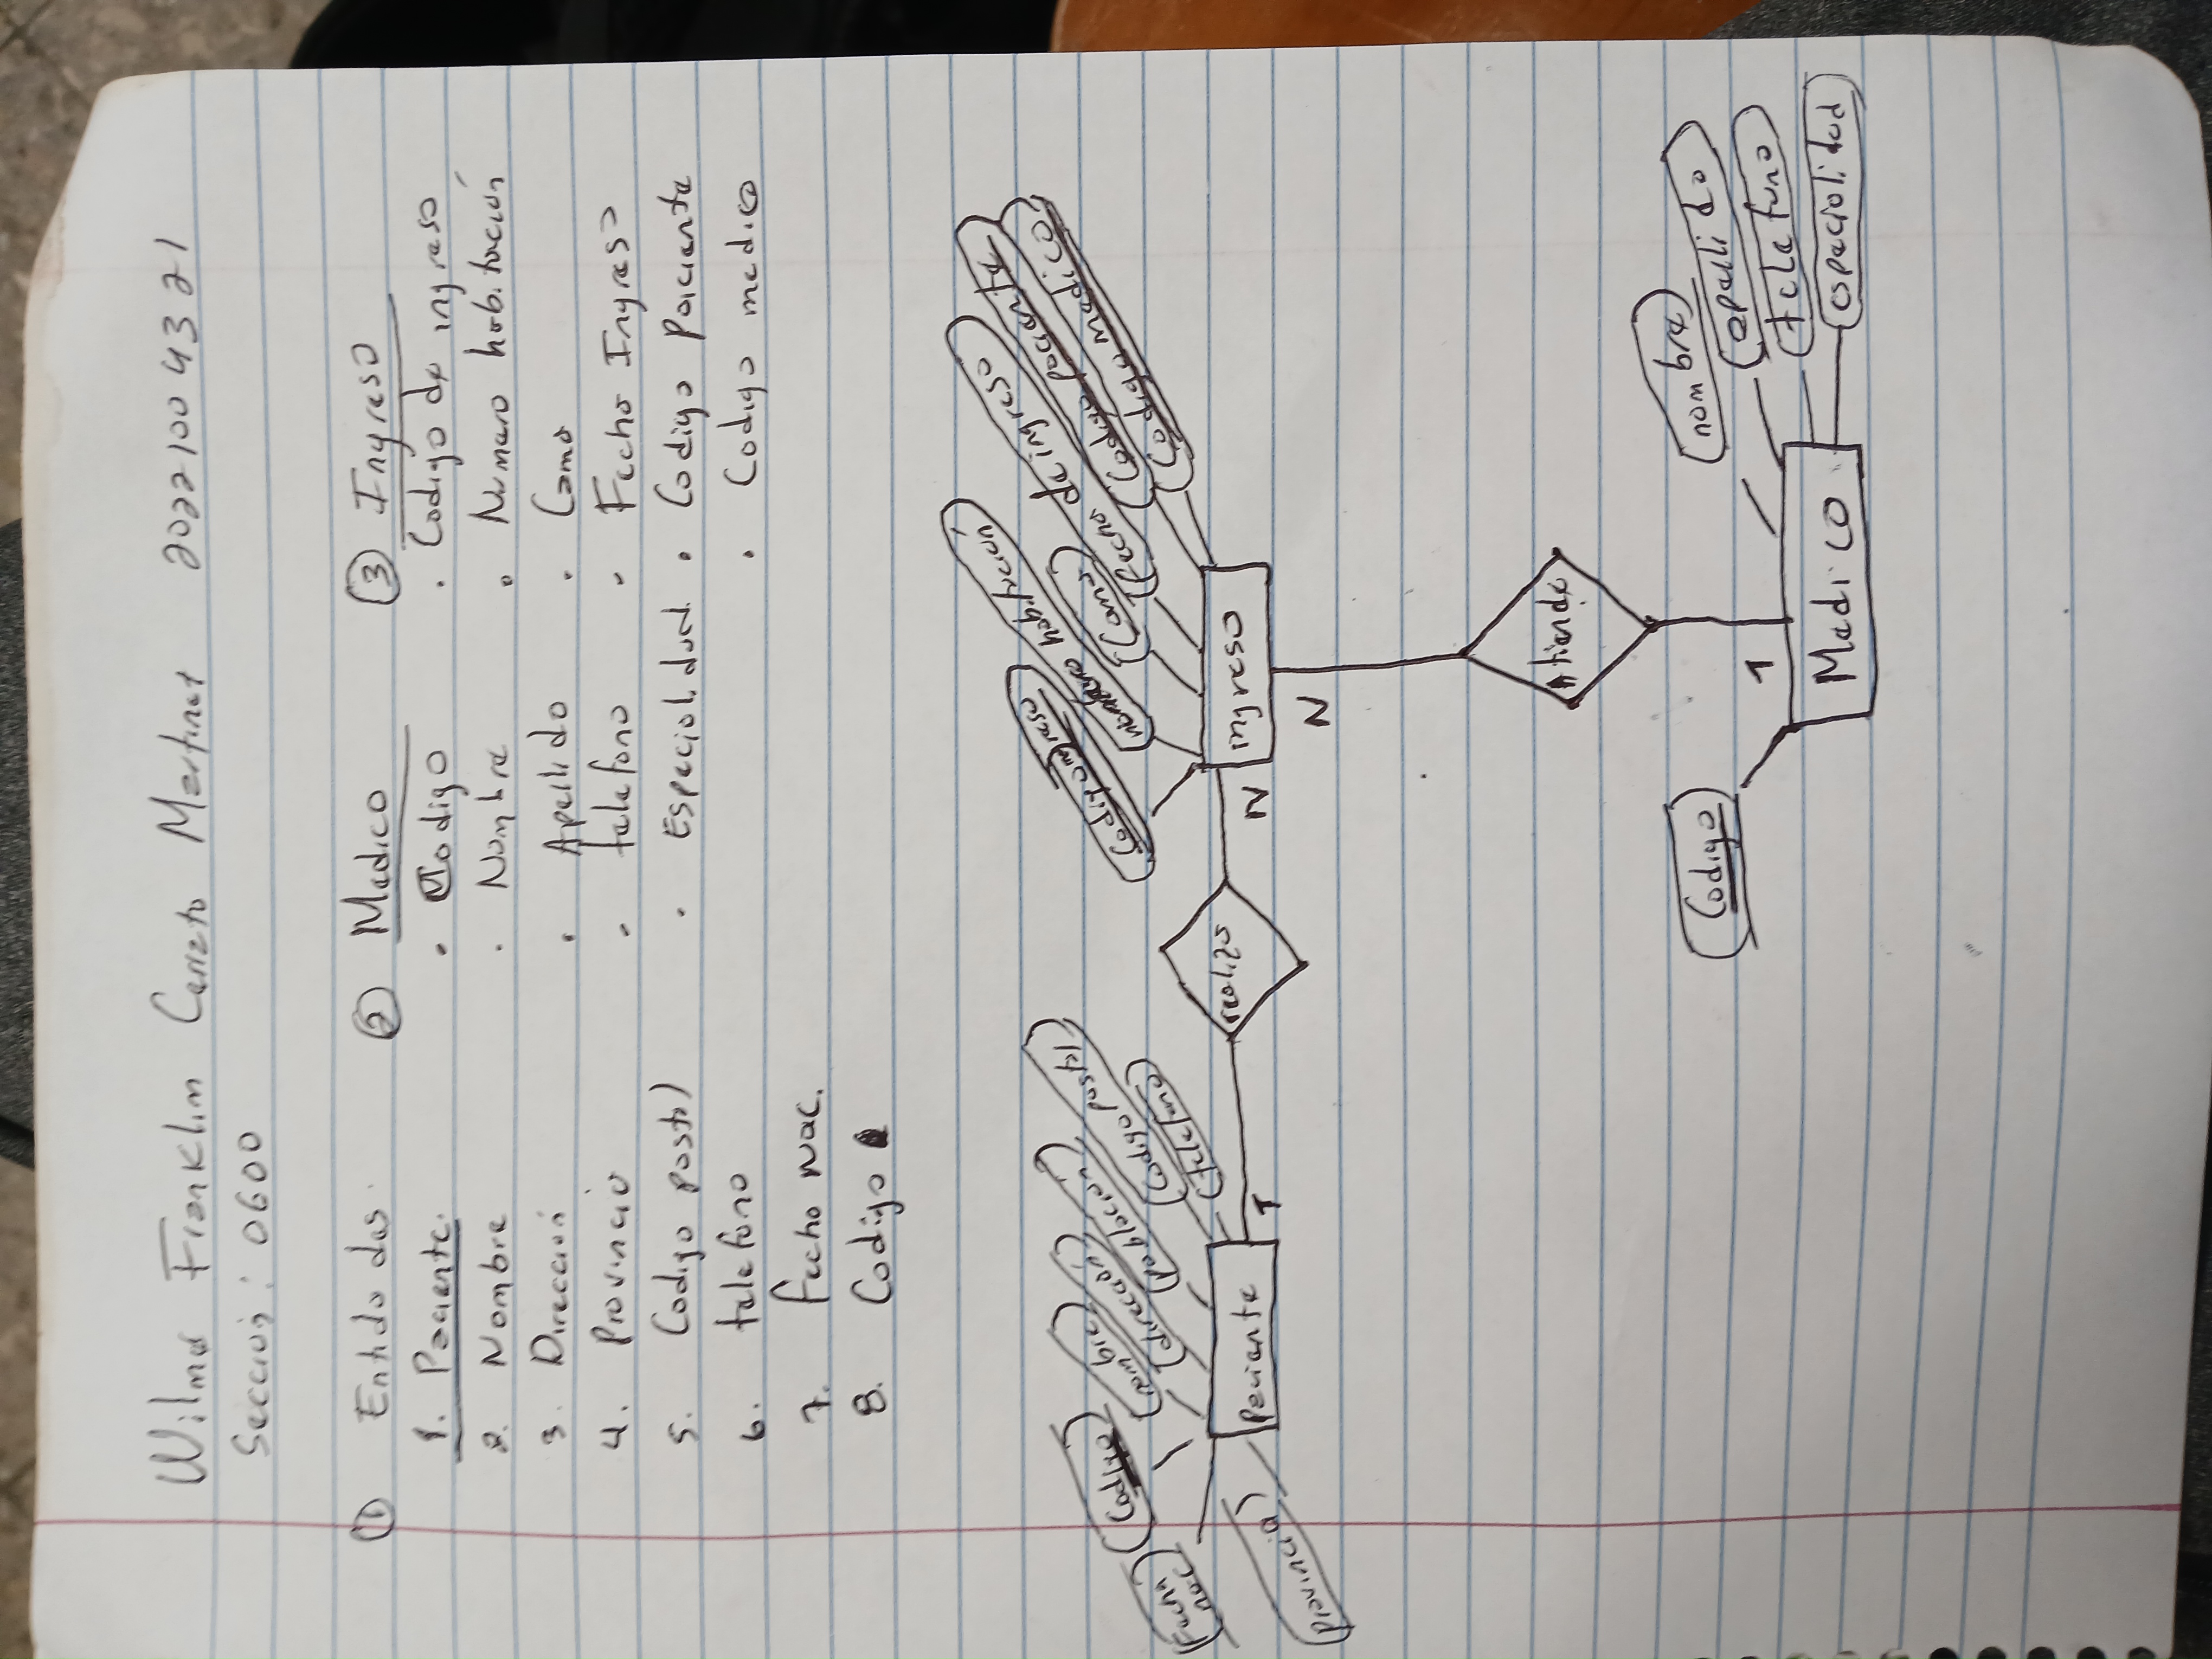 Wilmer Franklin Cerrato Martinez 20221004321
Sección: 0600
① Entidades ② Medico ③ Ingreso
1. Paciente. • Codigo • Codigo de ingreso
2. Nombre • Nombre • Numero habitación
3. Dirección • Apellido • Cama
4. Provincia • telefono • Fecha Ingreso
5. Codigo postal • Especialidad • Codigo Paciente
6. telefono • Codigo medico
7. Fecha nac.
8. Codigo
Fecha nac
Codigo
nombre
direccion
poblacion
Codigo postal
telefono
provincia
Paciente
1
realiza
N
Codigo ingreso
numero habitación
Cama
Fecha de ingreso
Codigo paciente
Codigo medico
ingreso
N
Atiende
1
Codigo
nombre
apellido
telefono
especialidad
Medico